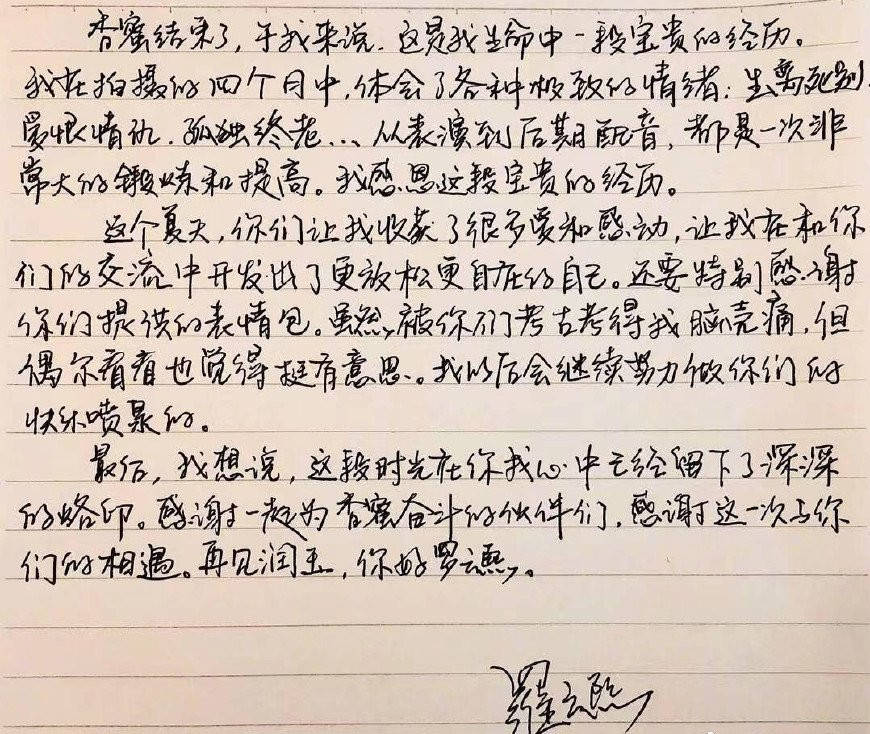 香蜜结束了,于我来说.这是我生命中一段宝贵的经历。
我在拍摄的四个月中,体会了各种极致的情绪:生离死别
爱恨情仇.孤独终老...从表演到后期配音,都是一次非
常大的锻炼和提高。我感恩这段宝贵的经历。
这个夏天,你们让我收获了很多爱和感动,让我在和你
们的交流中开发出了更放松更自在的自己。还要特别感谢
你们提供的表情包。虽然被你们考古考得我脑壳痛,但
偶尔看看也觉得挺有意思。我以后会继续努力做你们的
快乐喷泉的。
最后,我想说,这段时光在你我心中已经留下了深深
的烙印。感谢一起为香蜜奋斗的伙伴们,感谢这一次与你
们的相遇。再见润玉,你好罗云熙。
羅云熙